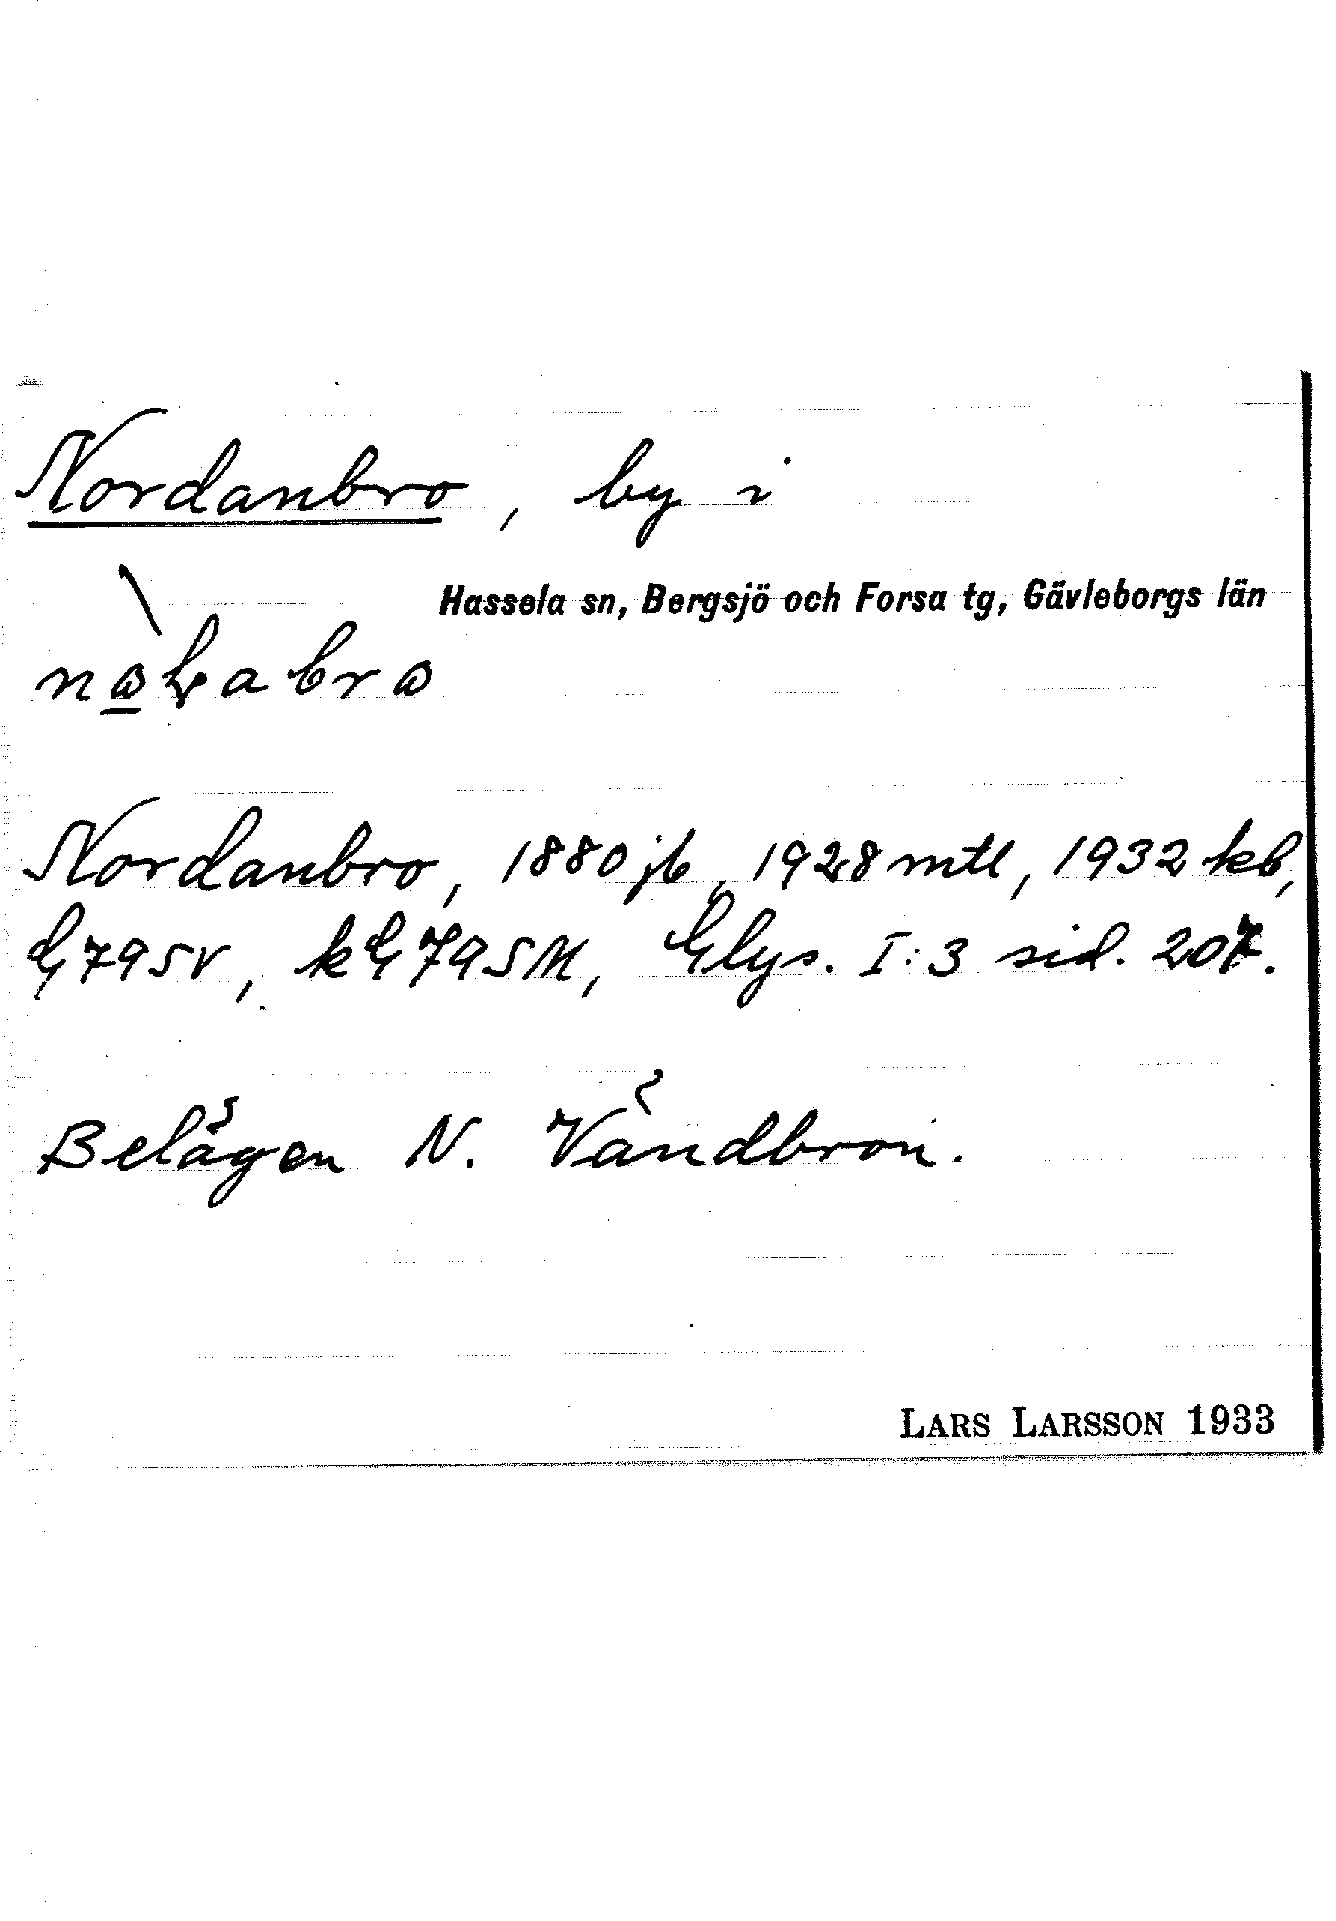 Nordanbro, by i
Hassela sn, Bergsjö och Forsa tg, Gävleborgs län
Nordanbro, 1880 jb, 1928 mtl, 1932 kb,
G795V, kG795M, Glys. I:3 sid. 207.
Belägen N. Vándbron.
LARS LARSSON 1933